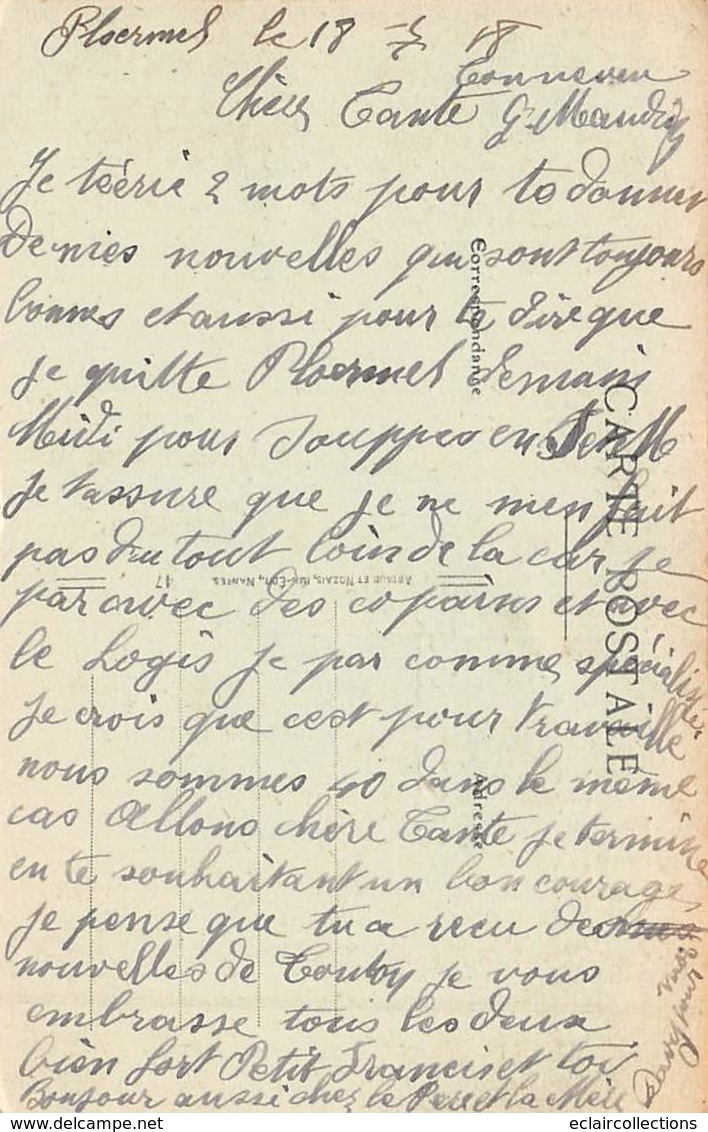 Ploermel le 18 - 5 - 18
Chère Tante
Je técrie 2 mots pour te donner
De mes nouvelles qui sont toujours
bonnes et aussi pour te dire que
je quitte Ploermel demain
Midi pour
Je tassure que je ne men fait
pas du tout loin de la car je
par avec des copains et avec
le Logis je par comme spécialisier
Je crois que cest pour travaille
nous sommes 40 dans le même
cas Allons chère Tante je termine
en te souhaitant un bon courage
je pense que tu a recu de
nouvelles de je vous
embrasse tous les deux
bien fort Petit Francis et toi
Bonjour aussi chez le Pere et la Mère
CARTE POSTALE
Correspondance
Adresse
ARTAUD ET NOZAIS, IMP.-EDIT., NANTES
17
eclaircollections